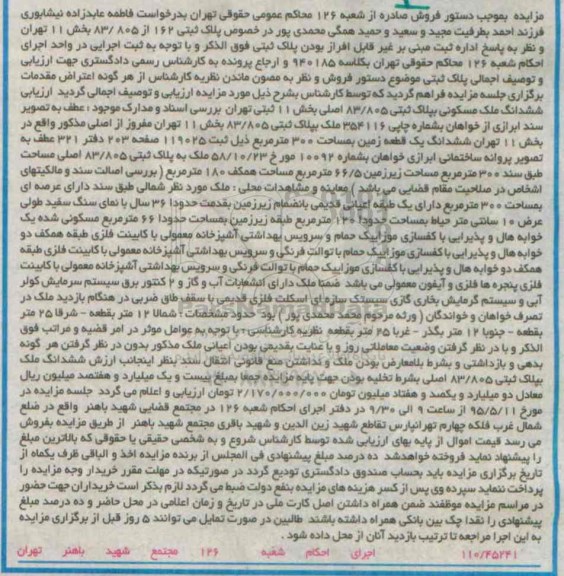 مزایده بموجب دستور فروش صادره از شعبه ۱۲۶ محاکم عمومی حقوقی تهران بدرخواست فاطمه عابدزاده نیشابوری
فرزند احمد بطرفیت مجید و سعید و حمید همگی محمدی پور در خصوص پلاک ثبتی ۱۶۲ از ۸۰۵ /۸۳ بخش ۱۱ تهران
و نظر به پاسخ اداره ثبت مبنی بر غیر قابل افراز بودن پلاک ثبتی فوق الذکر و با توجه به ثبت اجرایی در واحد اجرای
احکام شعبه ۱۲۶ محاکم حقوقی تهران بکلاسه ۹۴۰۱۸۵ و ارجاع پرونده به کارشناس رسمی دادگستری جهت ارزیابی
و توصیف اجمالی پلاک ثبتی موضوع دستور فروش و نظر به مصون ماندن نظریه کارشناس از هر گونه اعتراض مقدمات
برگزاری جلسه مزایده فراهم گردید که توسط کارشناس بشرح ذیل مورد ارزیابی و توصیف اجمالی گردید ارزیابی
ششدانگ ملک مسکونی بپلاک ثبتی ۸۳/۸۰۵ اصلی بخش ۱۱ ثبتی تهران بررسی اسناد و مدارک موجود : عطف به تصویر
سند ابرازی از خواهان بشماره چاپی ۳۵۴۱۱۶ ملک بپلاک ثبتی ۸۳/۸۰۵ بخش ۱۱ تهران مفروز از اصلی مذکور واقع در
بخش ۱۱ تهران ششدانگ یک قطعه زمین بمساحت ۳۰۰ مترمربع ذیل ثبت ۱۱۹۰۲۵ صفحه ۲۰۳ دفتر ۳۲۱ عطف به
تصویر پروانه ساختمانی ابرازی خواهان بشماره ۱۰۰۹۲ مورخ ۵۸/۱۰/۲۳ ملک به پلاک ثبتی ۸۳/۸۰۵ اصلی مساحت
طبق سند ۳۰۰ مترمربع مساحت زیرزمین ۶۶/۵ مترمربع مساحت همکف ۱۸۰ مترمربع ( بررسی اصالت سند و مالکیتهای
اشخاص در صلاحیت مقام قضایی می باشد ) معاینه و مشاهدات محلی : ملک مورد نظر شمالی طبق سند دارای عرصه ای
بمساحت ۳۰۰ مترمربع دارای یک طبقه اعیانی قدیمی بانضمام زیرزمین بقدمت حدودا ۳۶ سال با نمای سنگ سفید طولی
عرض ۱۰ سانتی متر حیاط بمساحت حدودا ۱۲۰ مترمربع طبقه زیرزمین بمساحت حدودا ۶۶ مترمربع مسکونی شده یک
خوابه هال و پذیرایی با کفسازی موزاییک حمام و سرویس بهداشتی آشپزخانه معمولی با کابینت فلزی طبقه همکف دو
خوابه هال و پذیرایی با کفسازی موزاییک حمام با توالت فرنگی و سرویس بهداشتی آشپزخانه معمولی با کابینت فلزی طبقه
همکف دو خوابه هال و پذیرایی با کفسازی موزاییک حمام با توالت فرنگی و سرویس بهداشتی آشپزخانه معمولی با کابینت
فلزی پنجره ها فلزی و آیفون معمولی می باشد ضمنا ملک دارای انشعابات آب و گاز و ۲ کنتور برق سیستم سرمایش کولر
آبی و سیستم گرمایش بخاری گازی سیستک سازه ای اسکلت فلزی قدیمی با سقف طاق ضربی در هنگام بازدید ملک در
تصرف خواهان و خواندگان ( ورثه مرحوم محمد محمدی پور ) بود حدود مشخصات : شمالا ۱۲ متر بقطعه - شرقا ۲۵ متر
بقطعه - جنوبا ۱۲ متر بگذر - غربا ۲۵ متر بقطعه نظریه کارشناسی : با توجه به عوامل موثر در امر قضیه و مراتب فوق
الذکر و با در نظر گرفتن وضعیت معاملاتی روز و با عنایت بقدیمی بودن اعیانی ملک مذکور بدون در نظر گرفتن هر گونه
بدهی و بازداشتی و بشرط بلامعارض بودن ملک و نداشتن منع قانونی انتقال سند بنظر اینجانب ارزش ششدانگ ملک
بپلاک ثبتی ۸۳/۸۰۵ اصلی بشرط تخلیه بودن جهت پایه مزایده جمعا بمبلغ بیست و یک میلیارد و هفتصد میلیون ریال
معادل دو میلیارد و یکصد و هفتاد میلیون تومان ۲/۱۷۰/۰۰۰/۰۰۰ تومان ارزیابی و اعلام می گردد جلسه مزایده در
مورخ ۹۵/۵/۱۱ از ساعت ۹ الی ۹/۳۰ در دفتر اجرای احکام شعبه ۱۲۶ در مجتمع قضایی شهید باهنر واقع در ضلع
شمال غرب فلکه چهارم تهرانپارس تقاطع شهید زین الدین و شهید باقری مجتمع شهید باهنر از طریق مزایده بفروش
می رسد قیمت اموال از پایه بهای ارزیابی شده توسط کارشناس شروع و به شخصی حقیقی یا حقوقی که بالاترین مبلغ
را پیشنهاد نماید فروخته خواهدشد ده درصد مبلغ پیشنهادی فی المجلس از برنده مزایده اخذ و الباقی ظرف یکماه از
تاریخ برگزاری مزایده باید بحساب صندوق دادگستری تودیع گردد در صورتیکه در مهلت مقرر خریدار وجه مزایده را
پرداخت ننماید سپرده وی پس از کسر هزینه های مزایده بنفع دولت ضبط می گردد لازم بذکر است خریداران جهت حضور
در مراسم مزایده موظفند ضمن همراه داشتن اصل کارت ملی در تاریخ و زمان اعلامی در محل حاضر و ده درصد مبلغ
پیشنهادی را نقدا چک بین بانکی همراه داشته باشند طالبین در صورت تمایل می توانند ۵ روز قبل از برگزاری مزایده
به این اجرا مراجعه تا ترتیب بازدید آنان از محل داده شود .
۱۱۰/۴۵۲۴۱ اجرای احکام شعبه ۱۲۶ مجتمع شهید باهنر تهران